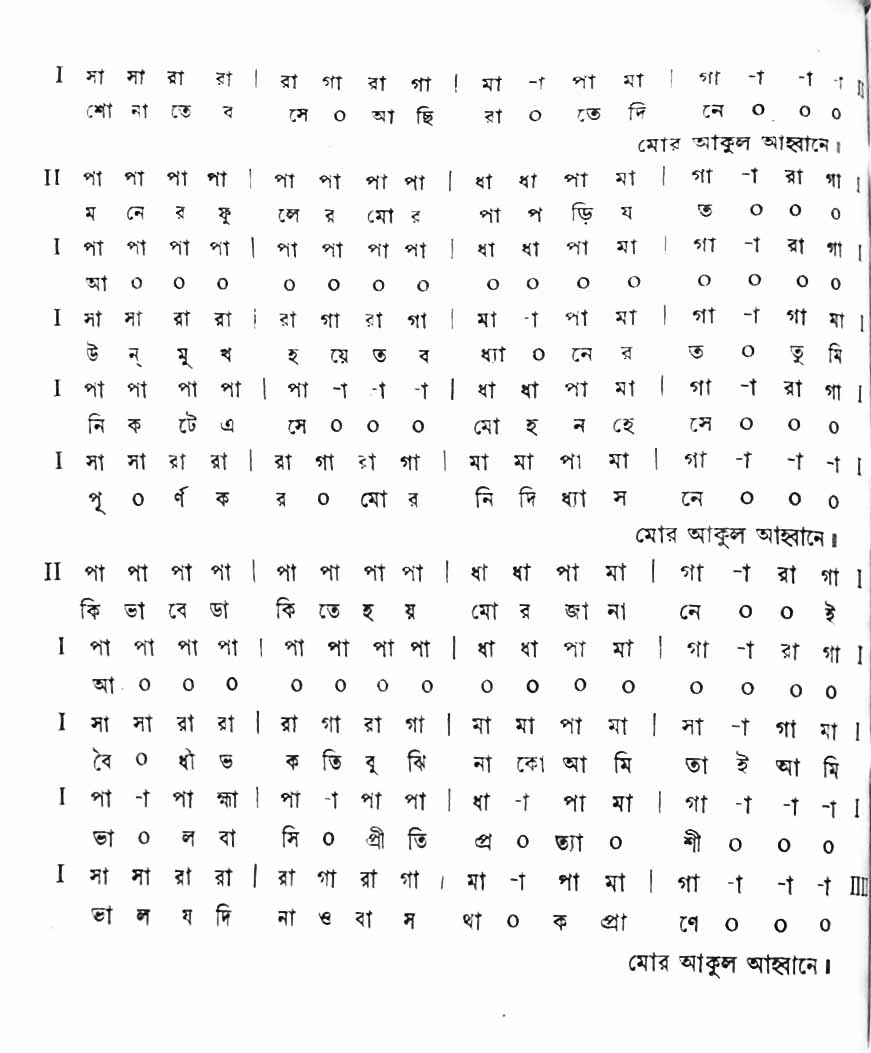 I সা সা রা রা | রা গা রা গা | মা -া পা মা | গা -া -া -া II
শো না তে ব সে ০ আ ছি রা ০ তে দি নে ০ ০ ০
মোর আকুল আহ্বানে।
II পা পা পা পা | পা পা পা পা | ধা ধা পা মা | গা -া রা গা I
ম নে র ফু লে র মো র পা প ড়ি য ত ০ ০ ০
I পা পা পা পা | পা পা পা পা | ধা ধা পা মা | গা -া রা গা I
আ ০ ০ ০ ০ ০ ০ ০ ০ ০ ০ ০ ০ ০ ০ ০
I সা সা রা রা | রা গা রা গা | মা -া পা মা | গা -া গা মা I
উ ন্ মু খ হ য়ে ত ব ধ্যা ০ নে র ত ০ তু মি
I পা পা পা পা | পা -া -া -া | ধা ধা পা মা | গা -া রা গা I
নি ক টে এ সে ০ ০ ০ মো হ ন হে সে ০ ০ ০
I সা সা রা রা | রা গা রা গা | মা মা পা মা | গা -া -া -া I
পূ ০ র্ণ ক র ০ মো র নি দি ধ্যা স নে ০ ০ ০
মোর আকুল আহ্বানে॥
II পা পা পা পা | পা পা পা পা | ধা ধা পা মা | গা -া রা গা I
কি ভা বে ডা কি তে হ য় মো র জা না নে ০ ০ ই
I পা পা পা পা | পা পা পা পা | ধা ধা পা মা | গা -া রা গা I
আ ০ ০ ০ ০ ০ ০ ০ ০ ০ ০ ০ ০ ০ ০ ০
I সা সা রা রা | রা গা রা গা | মা মা পা মা | সা -া গা মা I
বৈ ০ ধী ভ ক তি বু ঝি না কো আ মি তা ই আ মি
I পা -া পা হ্মা | পা -া পা পা | ধা -া পা মা | গা -া -া -া I
ভা ০ ল বা সি ০ প্রী তি প্র ০ ত্যা ০ শী ০ ০ ০
I সা সা রা রা | রা গা রা গা | মা -া পা মা | গা -া -া -া IIII
ভা ল য দি না ও বা স থা ০ ক প্রা ণে ০ ০ ০
মোর আকুল আহ্বানে॥